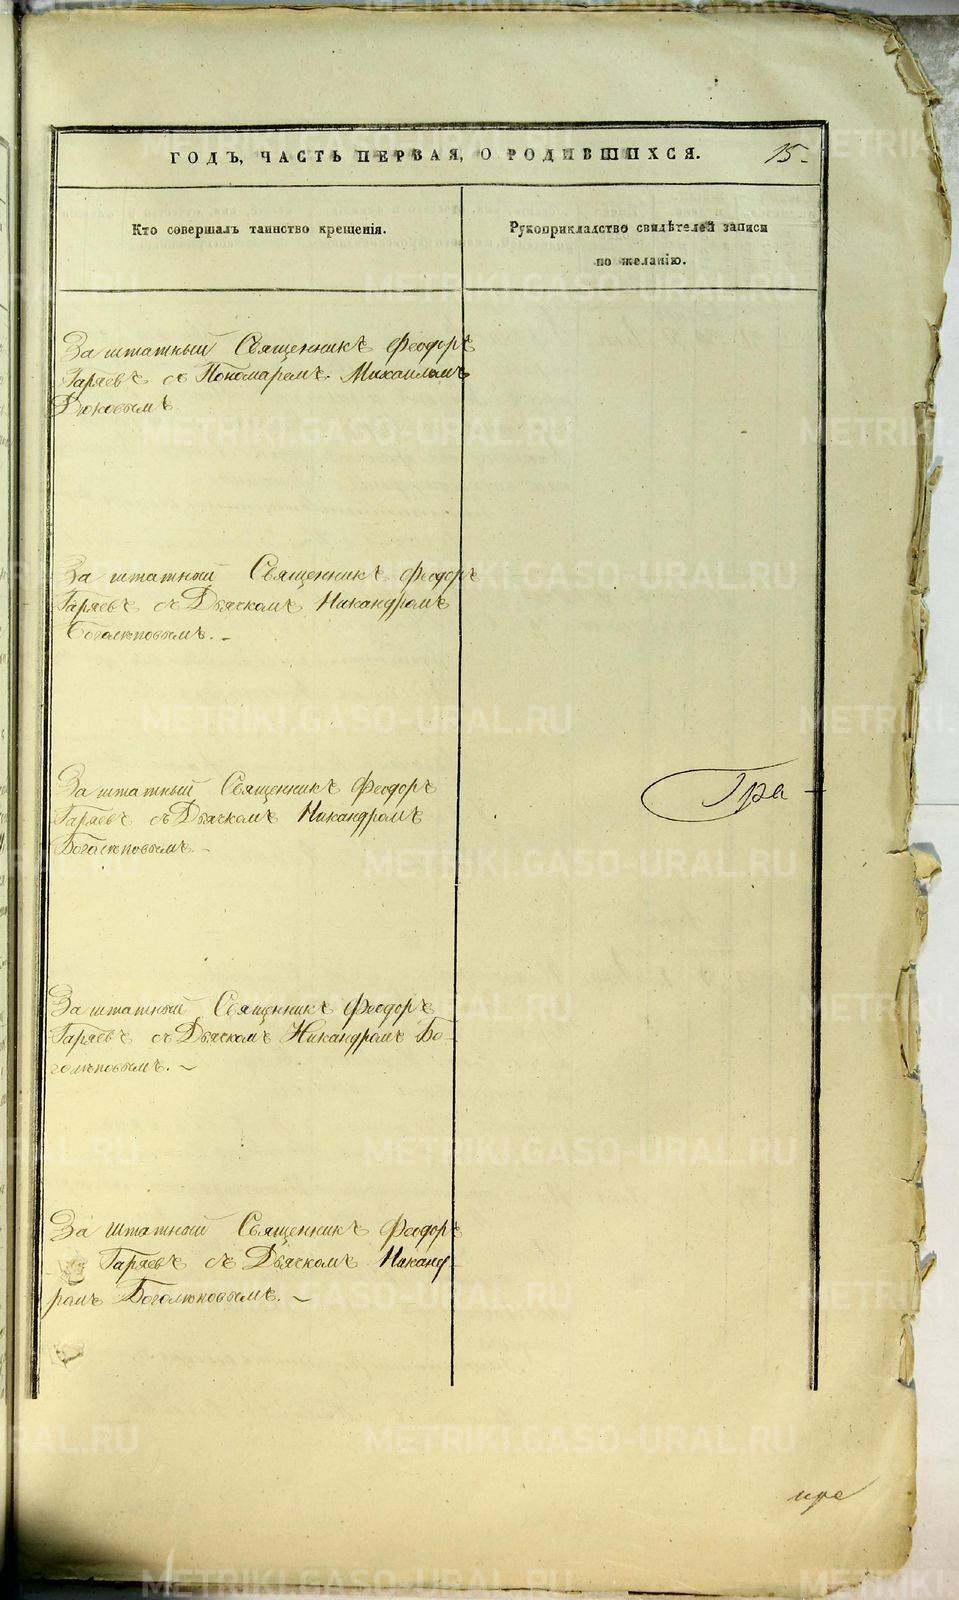 ГОДЪ, ЧАСТЬ ПЕРВАЯ, О РОДИВШИХСЯ. 15.
Кто совершалъ таинство крещенія.
Рукоприкладство свидѣтелей записи
по желанію.
Заштатный Священникъ Феодоръ
Гаряевъ съ Пономаремъ Михаиломъ
Заштатный Священникъ Феодоръ
Гаряевъ съ Дьячкомъ Никандромъ
Боголѣповымъ. –
Заштатный Священникъ Феодоръ
Гаряевъ съ Дьячкомъ Никандромъ
Боголѣповымъ. –
Гра –
Заштатный Священникъ Феодоръ
Гаряевъ съ Дьячкомъ Никандромъ Бо-
голѣповымъ. –
Заштатный Священникъ Феодоръ
Гаряевъ съ Дьячкомъ Никанд-
ромъ Боголѣповымъ. –
METRIKI.GASO-URAL.RU